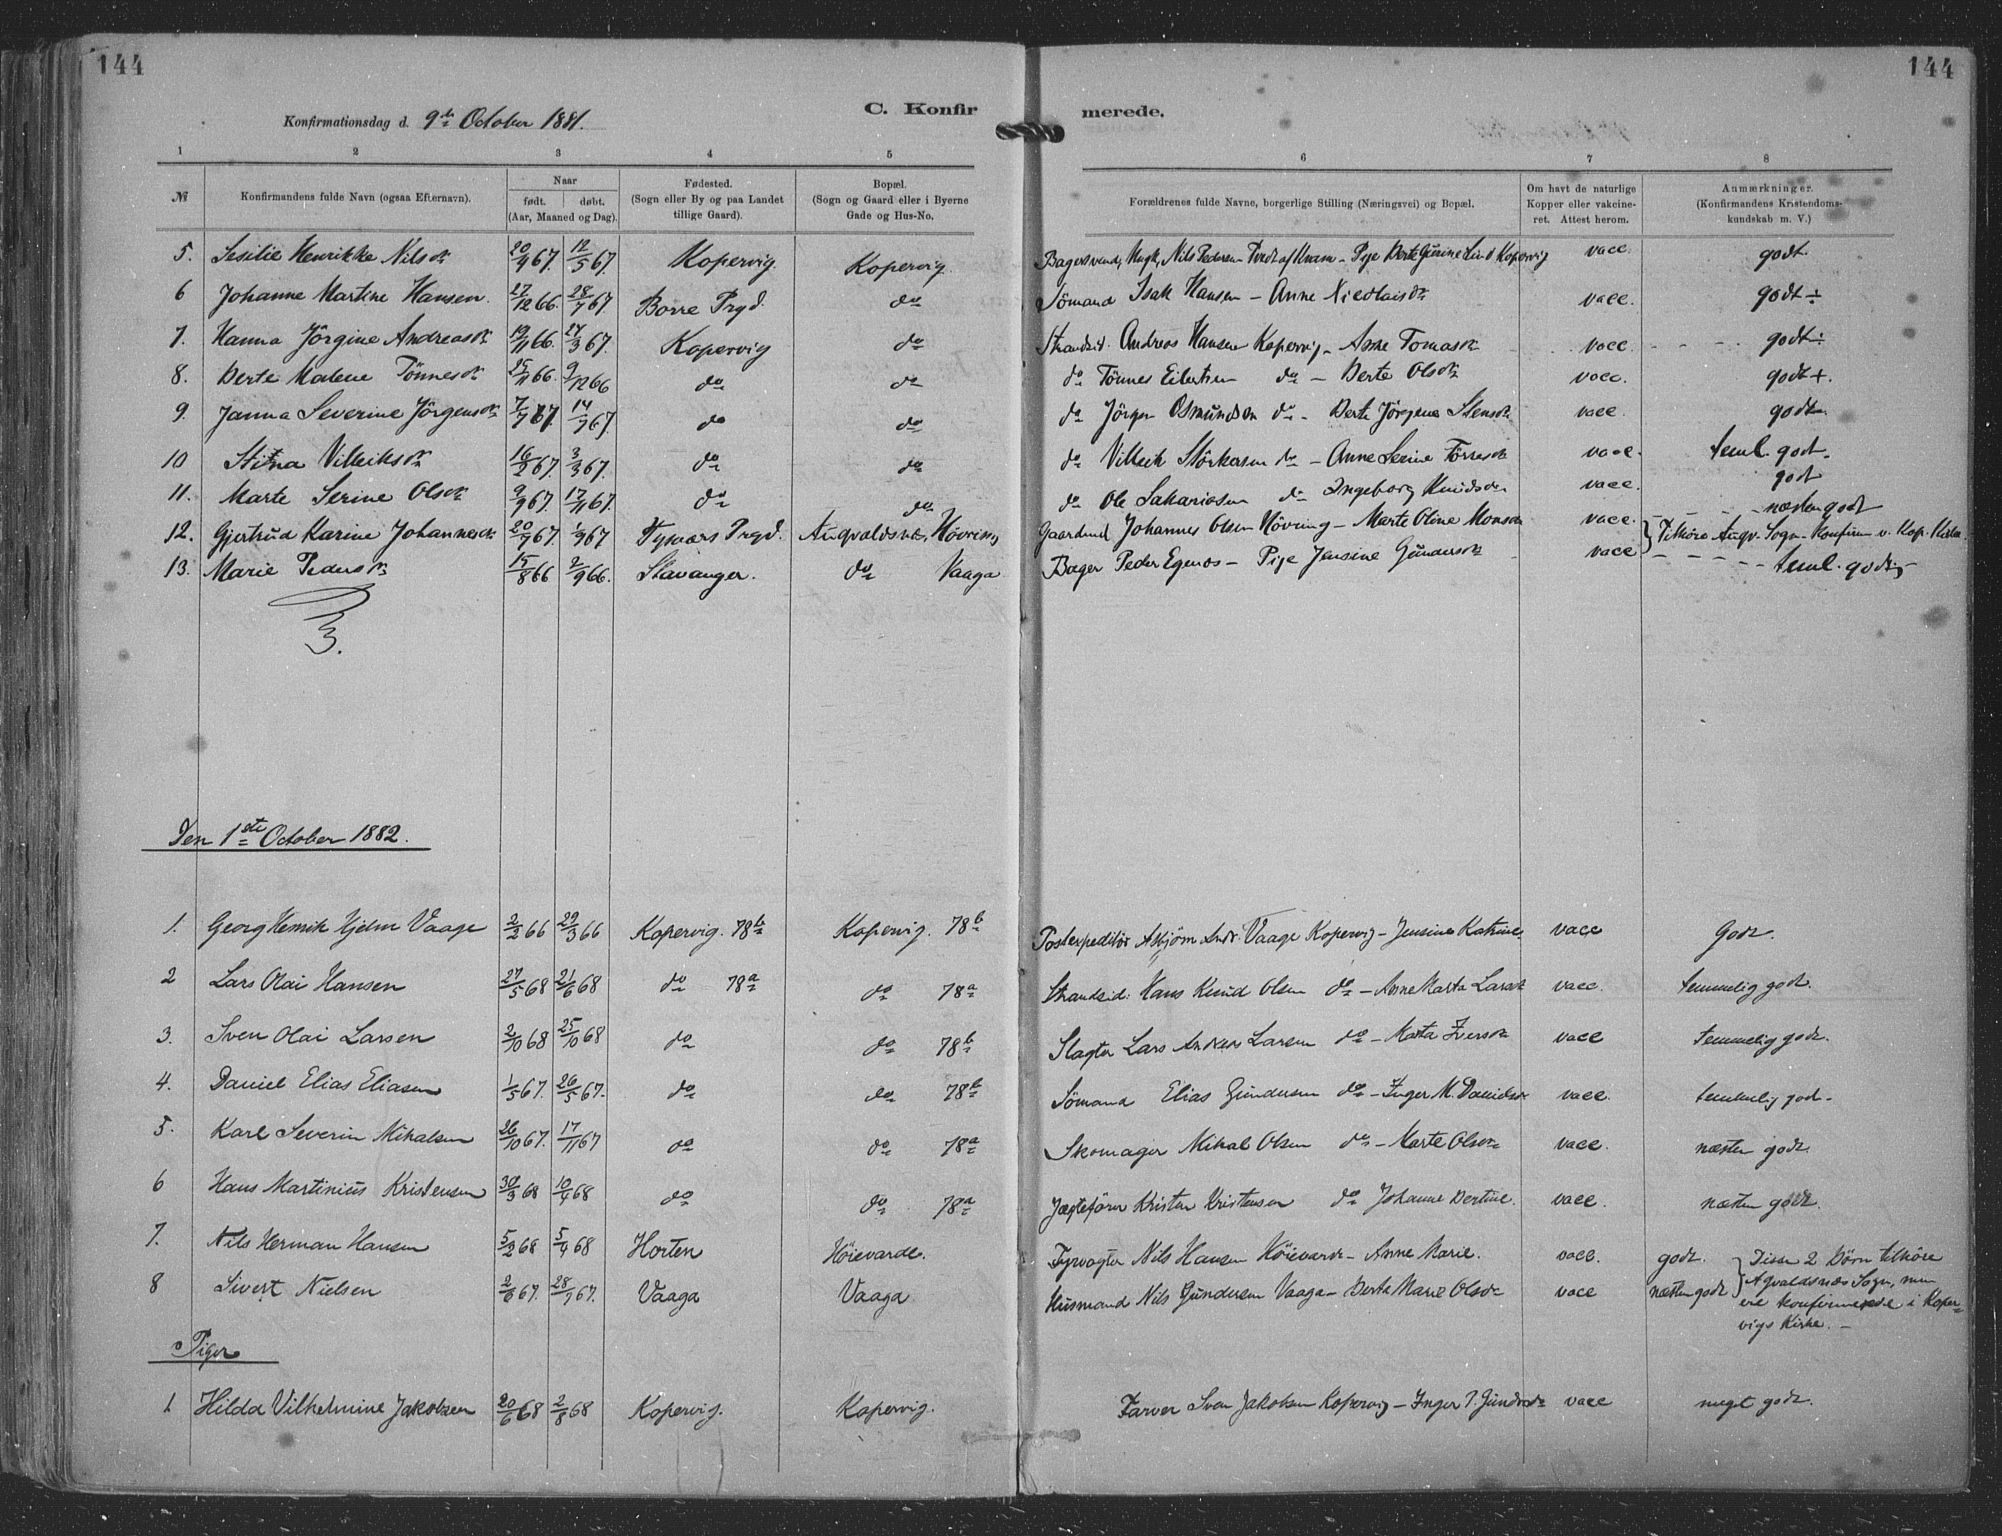 144
144
C. Konfirmerede.
Konfirmationsdag d. 9de October 1881.
1 2 3 4 5 6 7 8
№ Konfirmandens fulde Navn (ogsaa Efternavn). Naar født. døbt. (Aar, Maaned og Dag). Fødested. (Sogn eller By og paa Landet tillige Gaard). Bopæl. (Sogn og Gaard eller i Byerne Gade og Hus-No. Forældrenes fulde Navne, borgerlige Stilling (Næringsvei) og Bopæl. Om havt de naturlige Kopper eller vakcineret. Attest herom. Anmærkninger. (Konfirmandens Kristendomskundskab m. V.)
5. Sesilie Henrikke Nilsdr 20/4 67. 12/5 67. Kopervig Kopervig. Nils Pedersen - Pige Berte Gurine Lind Kopervig vacc. godt.
6 Johanne Martine Hansen. 27/12 66. 28/7 67. Borre Prgd. do Sömand Isak Hansen - Anne Nicolaisdr vacc. godt ÷
7. Hanna Jörgine Andreasdr 19/11 66. 24/3 67. Kopervig do Strandsid. Andreas Hansen Kopervig - Anne Tomasdr vacc. godt ÷
8. Berte Malene Tönnesdr 25/11 66. 9/12 66 do do do Tönnes Eilertsen do - Berte Olsdr vacc. godt +.
9. Janna Severine Jörgensdr 7/7 67. 14/7 67. do do do Jörgen Osmundsen do - Berte Jörgine Stensdr vacc. godt
10 Stina Villeiksdr 16/2 67. 3/3 67. do do do Villeik Störkersen do - Anne Serine Törresdr vacc. teml. godt.
11. Marte Serine Olsdr 9/9 67. 17/11 67. do do do Ole Sakariasen do - Ingeborg Knudsdr vacc. godt
12. Gjertrud Karine Johannesdr 20/7 67. 1/9 67 Tysvärs Prgd. Augvaldsnæs, Hövring Gaardmd Johannes Olsen Hövring - Marte Oline Monsdr vacc. næsten godt
Tilhöre Augv. Sogn - Konfirm. v. Kop. Kirke
13. Marie Pedersdr 15/8 66 2/9 66. Stavanger. do Vaaga Bager Peder Egenes - Pige Jensine Gundersdr vacc teml. godt
Den 1ste October 1882.
1. Georg Henrik Hjelm Vaage 2/2 66 29/3 66 Kopervig. 78b Kopervig. 78b Postexpeditör Asbjörn Andr. Vaage Kopervig - Jensine Katrine vacc Godt.
2 Lars Olai Hansen 27/5 68 21/6 68 do 78a do 78a Strandsid: Hans Knud Olsen do - Anne Marta Larsdr vacc. temmelig godt.
3. Sven Olai Larsen 2/10 68 25/10 68 do do 78b Slagter Lars Andreas Larsen do - Marta Iversdr vacc temmelig godt.
4. Daniel Elias Eliasen 1/5 67. 26/5 67. do do 78b Sömand Elias Gundersen do - Inger M. Danielsdr vacc. temmelig godt.
5. Karl Severin Mikalsen 26/10 67. 17/11 67 do do 78a Skomager Mikal Olsen do - Marte Olsdr vacc. næsten godt.
6 Hans Martinius Kristensen 30/3 68 10/4 68 do do 78a Jægtefører Kristen Kristensen do Johanne Bertine. vacc. næsten godt.
7. Nils Herman Hansen 5/2 68 5/4 68 Horten Höievarde. Fyrvogter Nils Hansen Höievarde - Anne Marie. vacc. godt.
8 Sivert Nielsen 2/6 67. 28/7 67. Vaaga Vaaga Husmand Nils Gundersen Vaaga - Berta Marie Olsdr vacc næsten godt
Disse 2 Børn tilhöre
Agvaldsnæs Sogn, men
ere konfirmerede i Koper-
vigs Kirke. -
Piger
1. Hilda Vilhelmine Jakobsen 20/6 68 2/8 68 Kopervig. Kopervig. Farver Sven Jakobsen Kopervig - Inger T. Gundersdr vacc meget godt.